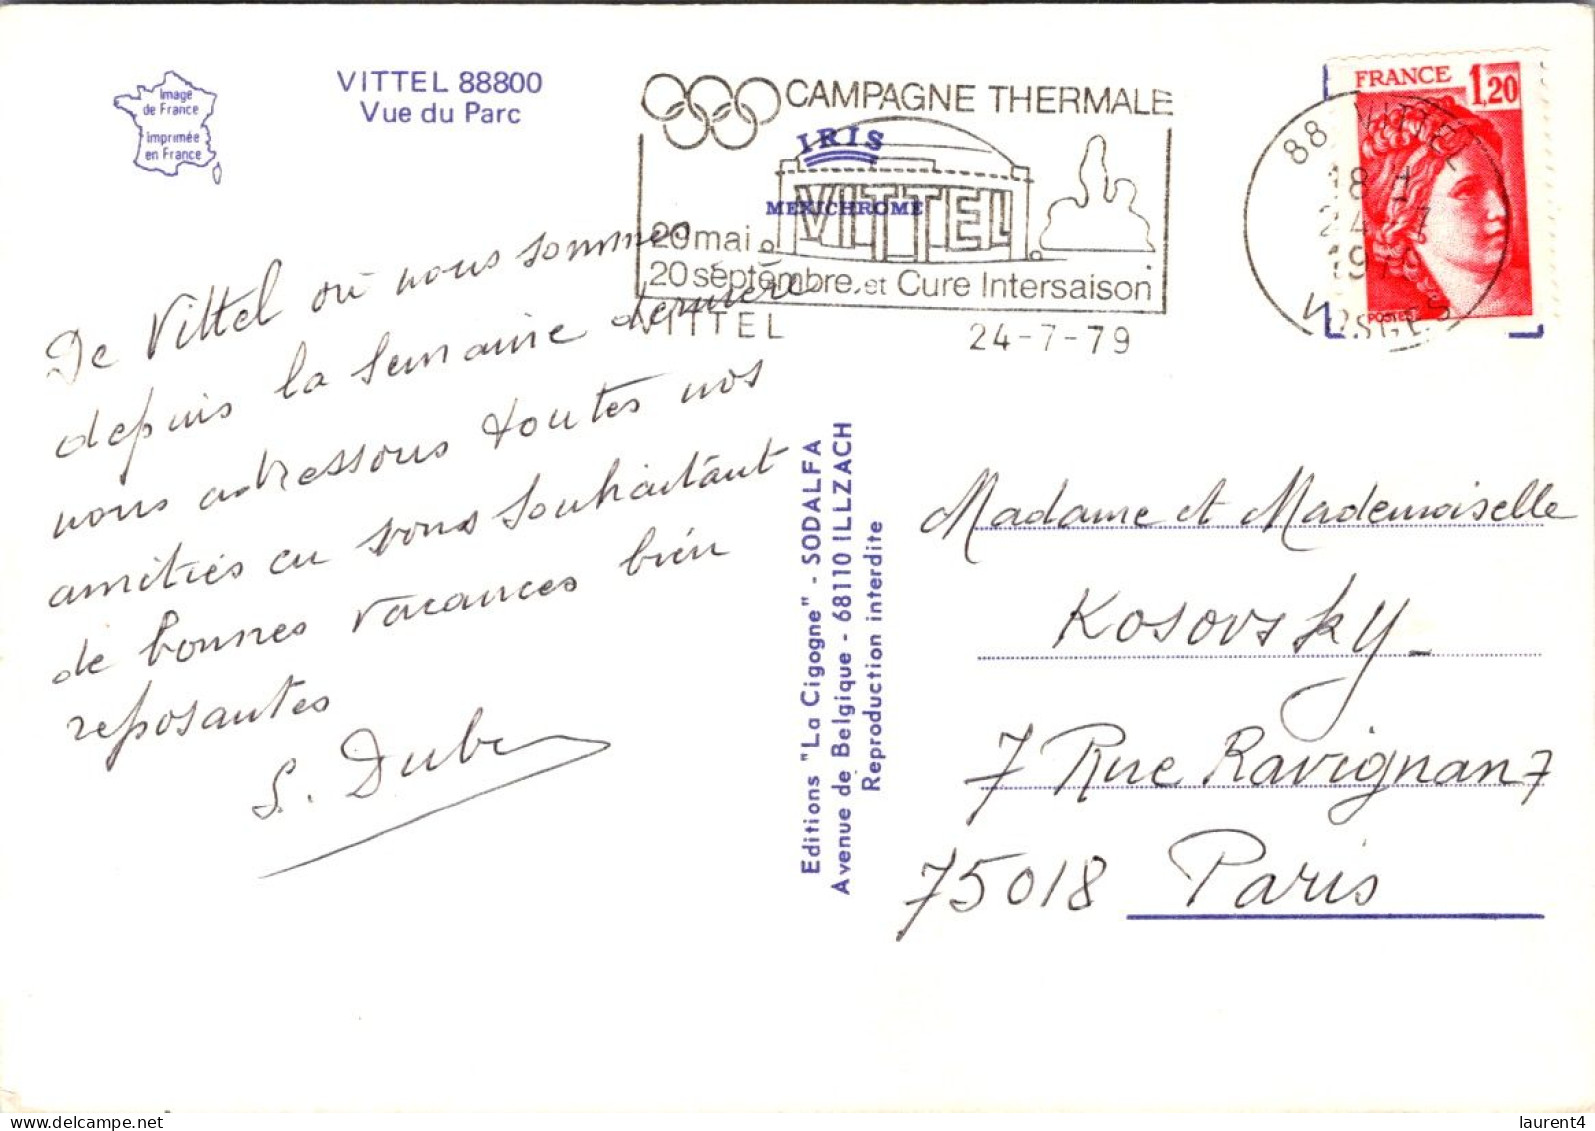 Image
de France
imprimée
en France
VITTEL 88800
Vue du Parc
CAMPAGNE THERMALE
IRIS
VITTEL
MEXICHROME
20 mai
20 septembre et Cure Intersaison
VITTEL 24-7-79
FRANCE 1,20
POSTES
88 VITTEL
18 H
24 -7
1979
VOSGES
De Vittel où nous sommes
depuis la semaine dernière
nous adressons toutes nos
amitiés en vous souhaitant
de bonnes vacances bien
reposantes
S.
Editions "La Cigogne" - SODALFA
Avenue de Belgique - 68110 ILLZACH
Reproduction interdite
Madame et Mademoiselle
Kosovsky
7 Rue Ravignan 7
75018 Paris
laurent4